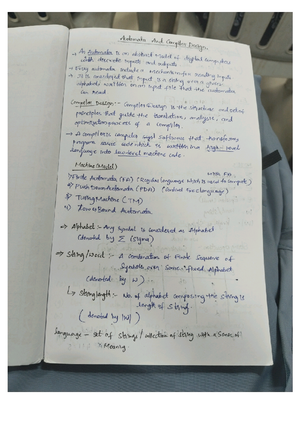 Automata And Compiler Design
→ An Automata is an abstract model of digital computer
with discrete inputs and outputs
→ Every automata include a mechanism for reading inputs
→ It is considered that input is a string over a given
alphabet, written on an input file that the automata
can read.
Compiler Design :- Compiler Design is the structure and set of
principles that guide the translation, analysis, and
optimization process of a compiler.
→ A compiler is software that
program which is written in a high-level
language into low-level machine code.
Machine (Model)
1) Finite Automata (FA) (Regular language which is used to compute)
2) Push Down Automata (PDA) (Context free language)
3) Turing Machine (TM)
4) Linear Bound Automata
→ Alphabet :- Any symbol is considered as Alphabet
(denoted by Σ (sigma)
→ String/word :- A combination of finite sequence of
symbols over some fixed alphabet
(denoted by W)
↳ string length :- No. of alphabet composing the string is
length of string.
( denoted by |W| )
Language - set of strings / collection of string with some
Meaning.